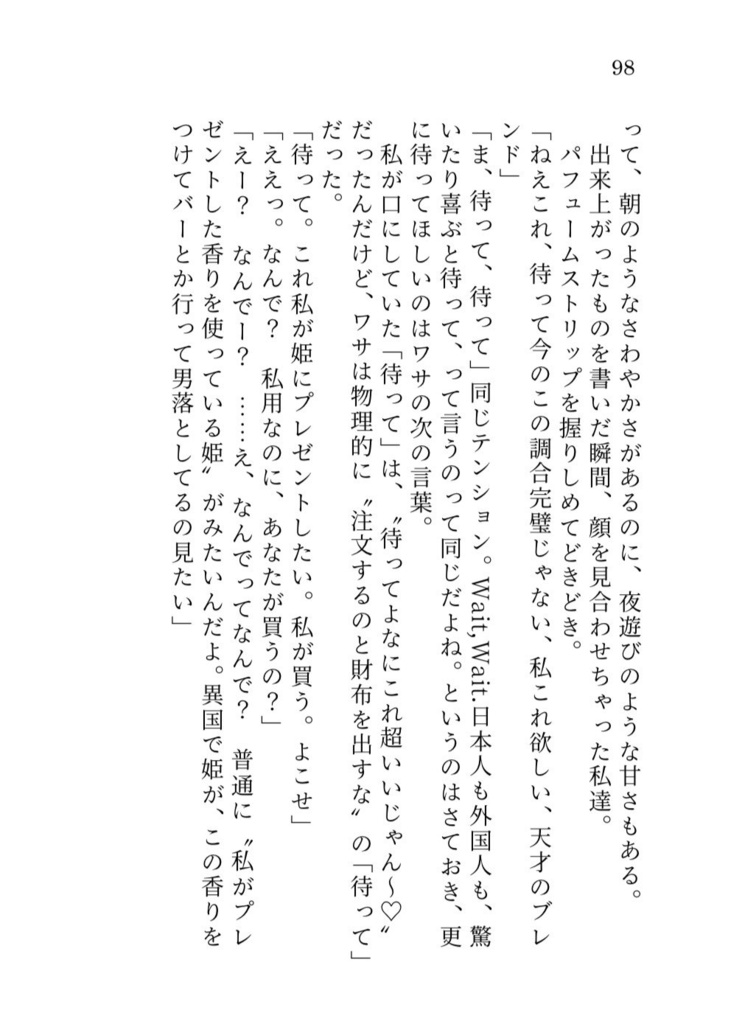 98
って、朝のようなさわやかさがあるのに、夜遊びのような甘さもある。
出来上がったものを書いだ瞬間、顔を見合わせちゃった私達。
パフュームストリップを握りしめてどきどき。
「ねえこれ、待って今のこの調合完璧じゃない、私これ欲しい、天才のブレ
ンド」
「ま、待って、待って」同じテンション。Wait,Wait.日本人も外国人も、驚
いたり喜ぶと待って、って言うのって同じだよね。というのはさておき、更
に待ってほしいのはワサの次の言葉。
私が口にしていた「待って」は、〝待ってよなにこれ超いいじゃん～♡〟
だったんだけど、ワサは物理的に〝注文するのと財布を出すな〟の「待って」
だった。
「待って。これ私が姫にプレゼントしたい。私が買う。よこせ」
「ええっ。なんで？　私用なのに、あなたが買うの？」
「えー？　なんでー？　……え、なんでってなんで？　普通に〝私がプレ
ゼントした香りを使っている姫〟がみたいんだよ。異国で姫が、この香りを
つけてバーとか行って男落としてるの見たい」